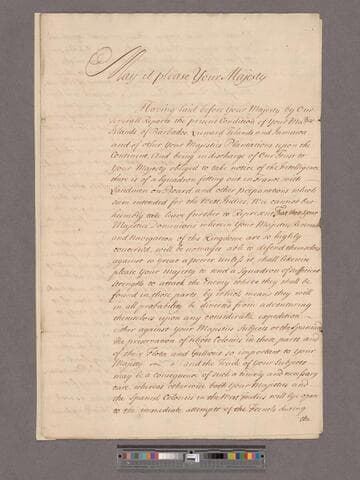 May it please Your Majesty
Having laid before Your Majesty by Our
severall Reports the present Condition of Your Majties
Islands of Barbados, Leeward Islands and Jamaica
and of other Your Majesties Plantations upon the
Continent, And being in discharge of Our Trust to
Your Majesty obliged to take notice of the Intelligence
there is of a Squadron fitting out in France with
Landmen on Board and other Preparations which
seem intended for the West Indies, We cannot but
humbly take leave further to Represent, That these Your
Majesties Dominions wherein Your Majestys Revenue
and Navigation of this Kingdome are so highly
concerned, will be not safe able to defend themselves
against so great a power, Unless it shall likewise
please Your Majesty to send a Squadron of sufficient
strength to attack the Enemy where they shall be
found in those parts, by which means they will
in all probability be diverted from adventuring
themselves upon any considerable expedition
either against Your Majesties Subjects or the Spaniards
the preservation of whose Colonies in those parts and
of their Flota and Galleons so important to Your
Majesty and the Trade of Your Subjects
may be a consequence of such a timely and necessary
care, whereas otherwise both Your Majesties and
the Spanish Colonies in the West Indies will lye open
to the immediate attempts of the French during
the